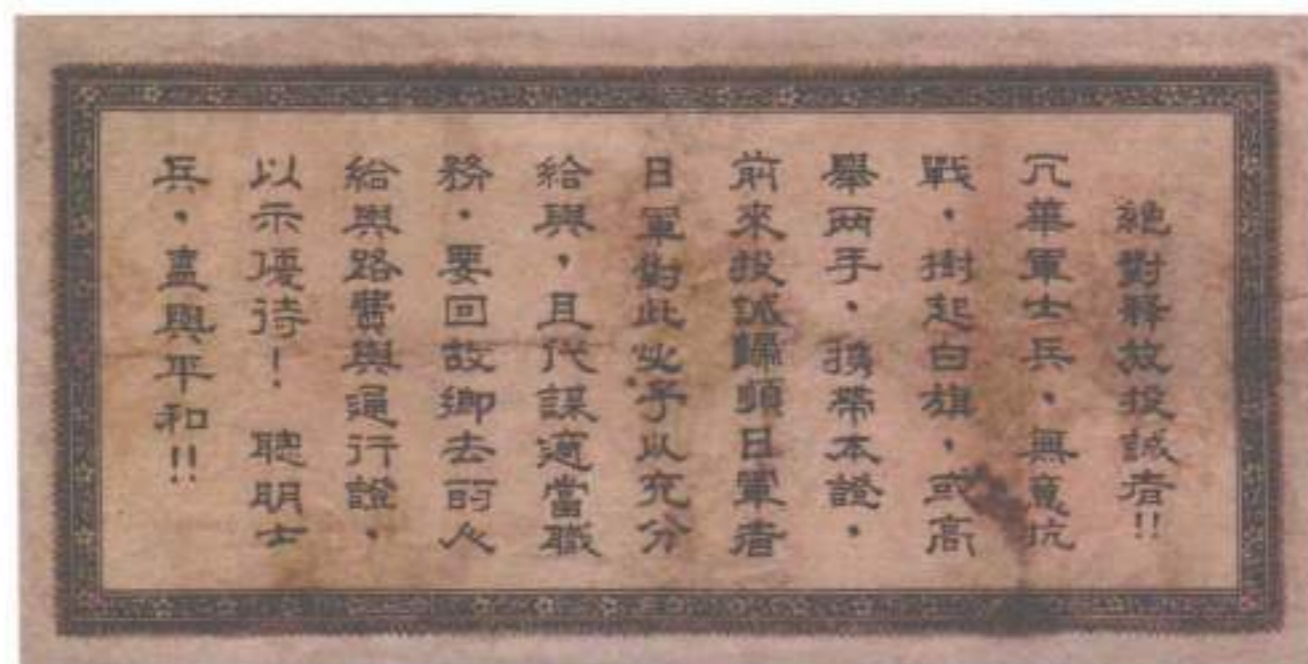 絶對釋放投誠者!!
冗華軍士兵、無意抗
戰、樹起白旗、或高
舉兩手、携帶本證、
前來投誠歸順日軍者
日軍對此必予以充分
給與、且代謀適當職
務、要回故鄉去的人
給與路費與通行證、
以示優待！聰明士
兵、盍興平和!!